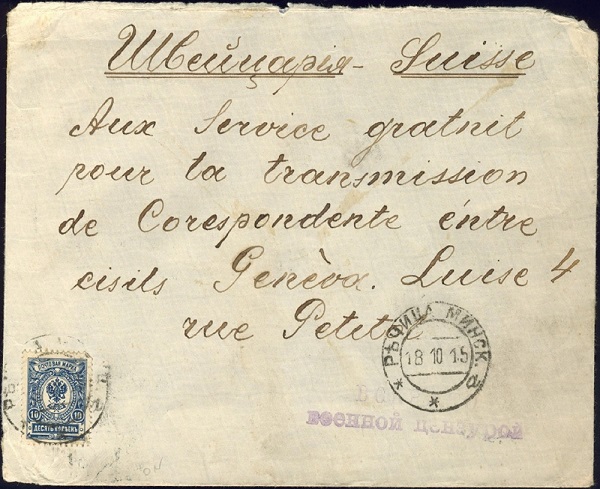 Швейцарія - Suisse
Aux Service gratnit
pour ta transmission
de Corespondente éntre
cisils Genèva. Luise 4
rue Petite
РѢЧИЦА МИНСК.
18 10 15
ПОЧТОВАЯ МАРКА
10 10
ДЕСЯТЬ КОПѢЕКЪ
военной цензурой